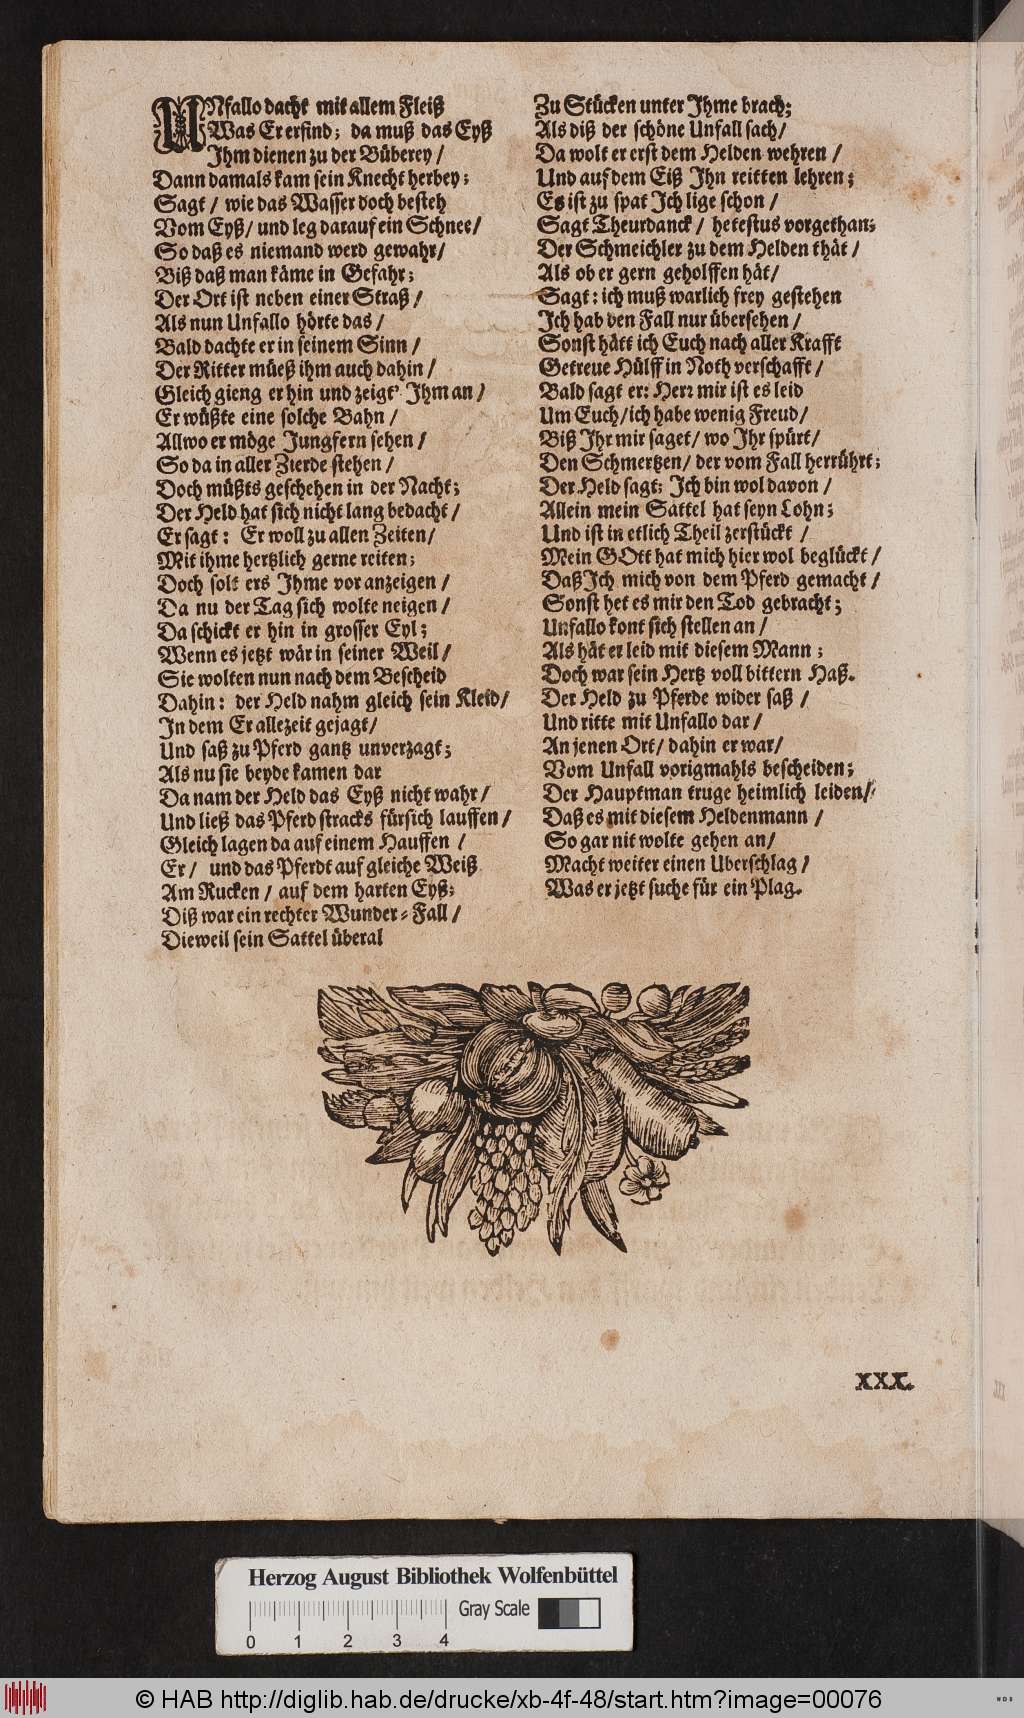 UNfallo dacht mit allem Fleiß
Was Er erfind; da muß das Eyß
Ihm dienen zu der Büberey /
Dann damals kam sein Knecht herbey;
Sagt / wie das Wasser doch besteh
Vom Eyß / und leg darauf ein Schnee /
So daß es niemand werd gewahr /
Biß daß man käme in Gefahr;
Der Ort ist neben einer Straß /
Als nun Unfallo hörte das /
Bald dachte er in seinem Sinn /
Der Ritter müeß ihm auch dahin /
Gleich gieng er hin und zeigt' Ihm an /
Er wüßte eine solche Bahn /
Allwo er möge Jungfern sehen /
So da in aller Zierde stehen /
Doch müßts geschehen in der Nacht;
Der Held hat sich nicht lang bedacht /
Er sagt: Er woll zu allen Zeiten /
Mit ihme hertzlich gerne reiten;
Doch solt ers Ihme vor anzeigen /
Da nu der Tag sich wolte neigen /
Da schickt er hin in grosser Eyl;
Wenn es jetzt wär in seiner Weil /
Sie wolten nun nach dem Bescheid
Dahin: der Held nahm gleich sein Kleid /
In dem Er allezeit gejagt /
Und saß zu Pferd gantz unverzagt;
Als nu sie beyde kamen dar
Da nam der Held das Eyß nicht wahr /
Und ließ das Pferd stracks fürsich lauffen /
Gleich lagen da auf einem Hauffen /
Er / und das Pferdt auf gleiche Weiß
Am Rucken / auf dem harten Eyß;
Diß war ein rechter Wunder-Fall /
Dieweil sein Sattel überal
Zu Stücken unter Ihme brach;
Als diß der schöne Unfall sach /
Da wolt er erst dem Helden wehren /
Und auf dem Eiß Ihn reitten lehren;
Es ist zu spat Ich lige schon /
Sagt Theurdanck / hetestus vorgethan;
Der Schmeichler zu dem Helden thät /
Als ob er gern geholffen hät /
Sagt: ich muß warlich frey gestehen
Ich hab den Fall nur übersehen /
Sonst hätt ich Euch nach aller Krafft
Getreue Hülff in Noth verschafft /
Bald sagt er: Herr mir ist es leid
Um Euch / ich habe wenig Freud /
Biß Ihr mir saget / wo Ihr spürt /
Den Schmertzen / der vom Fall herrührt;
Der Held sagt; Ich bin wol davon /
Allein mein Sattel hat seyn Lohn;
Und ist in etlich Theil zerstückt /
Mein GOtt hat mich hier wol beglückt /
Daß Ich mich von dem Pferd gemacht /
Sonst het es mir den Tod gebracht;
Unfallo kont sich stellen an /
Als hät er leid mit diesem Mann;
Doch war sein Hertz voll bittern Haß.
Der Held zu Pferde wider saß /
Und ritte mit Unfallo dar /
An jenen Ort / dahin er war /
Vom Unfall vorigmahls bescheiden;
Der Hauptman truge heimlich leiden /
Daß es mit diesem Heldenmann /
So gar nit wolte gehen an /
Macht weiter einen Uberschlag /
Was er jetzt suche für ein Plag.
XXX.
Herzog August Bibliothek Wolfenbüttel
Gray Scale
0 1 2 3 4
© HAB http://diglib.hab.de/drucke/xb-4f-48/start.htm?image=00076